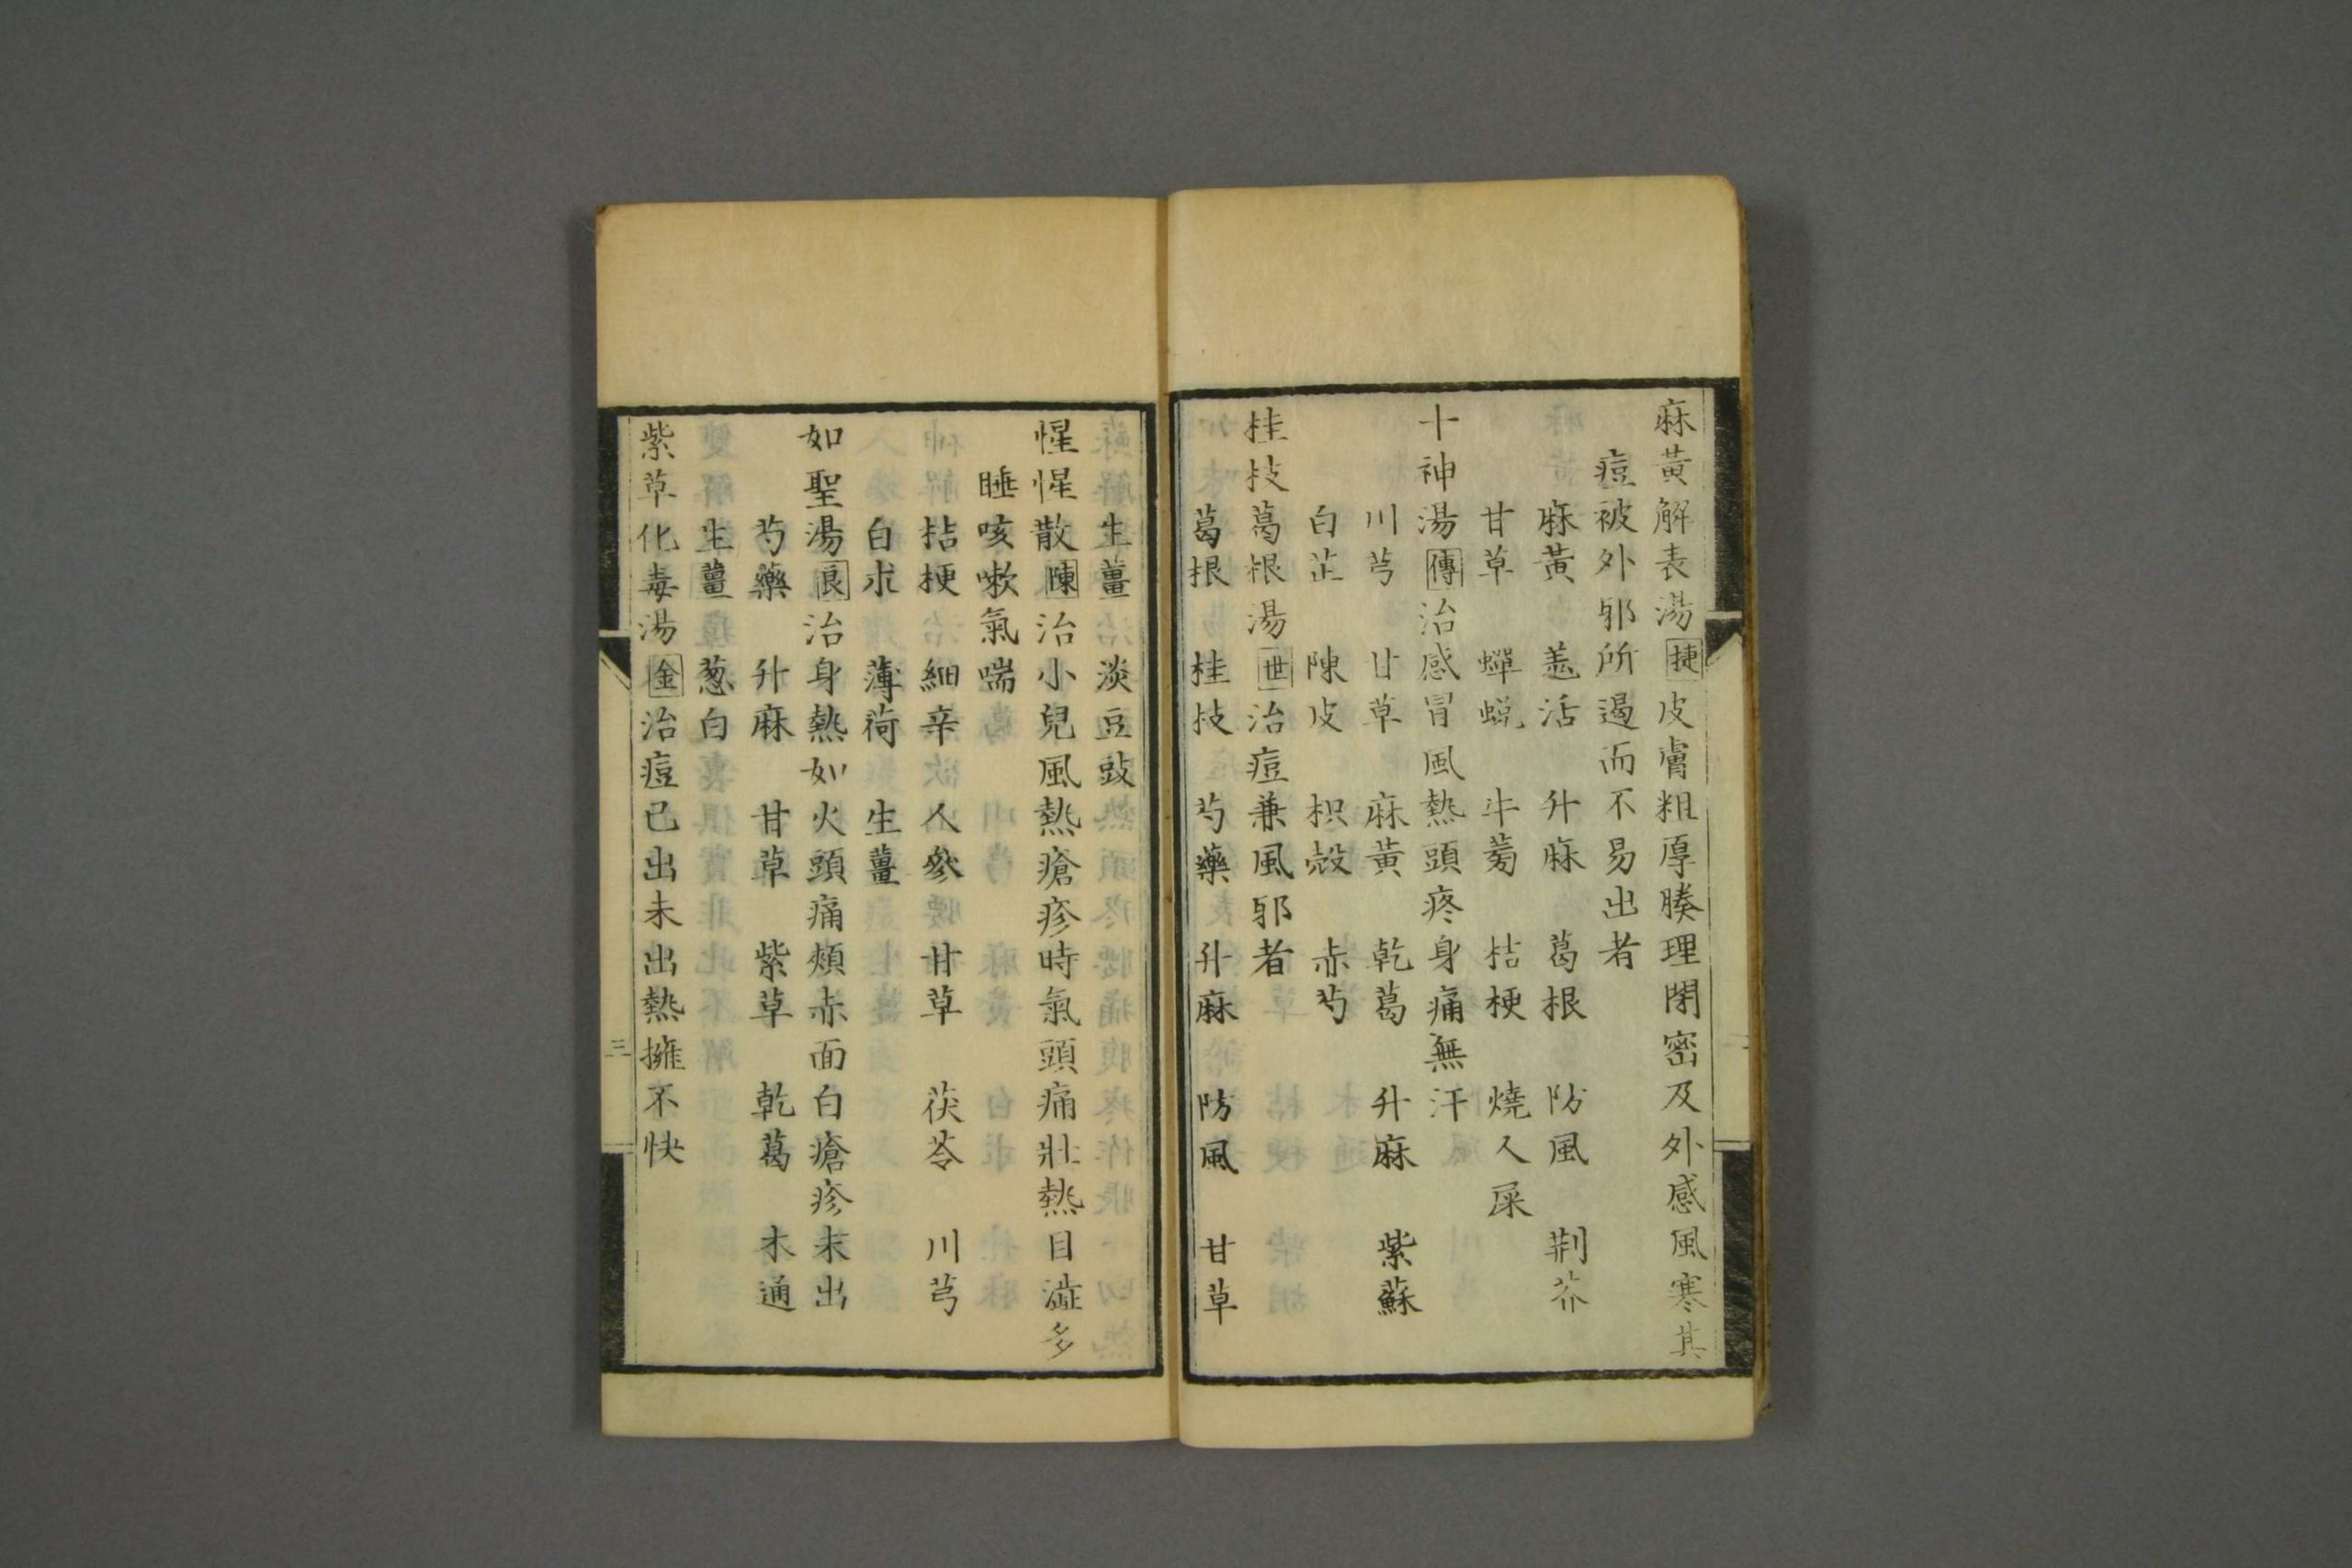 麻黃解表湯捷皮膚粗厚腠理閉密及外感風寒其
痘被外邪所遏而不易出者
麻黃 羌活 升麻 葛根 防風 荆芥
甘草 蟬蛻 牛蒡 桔梗 燒人屎
十神湯傳治感冒風熱頭疼身痛無汗
川芎 甘草 麻黃 乾葛 升麻 紫蘇
白芷 陳皮 枳殼 赤芍
桂枝葛根湯世治痘兼風邪者
葛根 桂枝 芍藥 升麻 防風 甘草
生薑 淡豆豉
惺惺散陳治小兒風熱瘡疹時氣頭痛壯熱目澁多
睡咳嗽氣喘
桔梗 細辛 人參 甘草 茯苓 川芎
白朮 薄荷 生薑
如聖湯良治身熱如火頭痛頰赤面白瘡疹未出
芍藥 升麻 甘草 紫草 乾葛 木通
生薑 葱白
紫草化毒湯金治痘已出未出熱擁不快
三